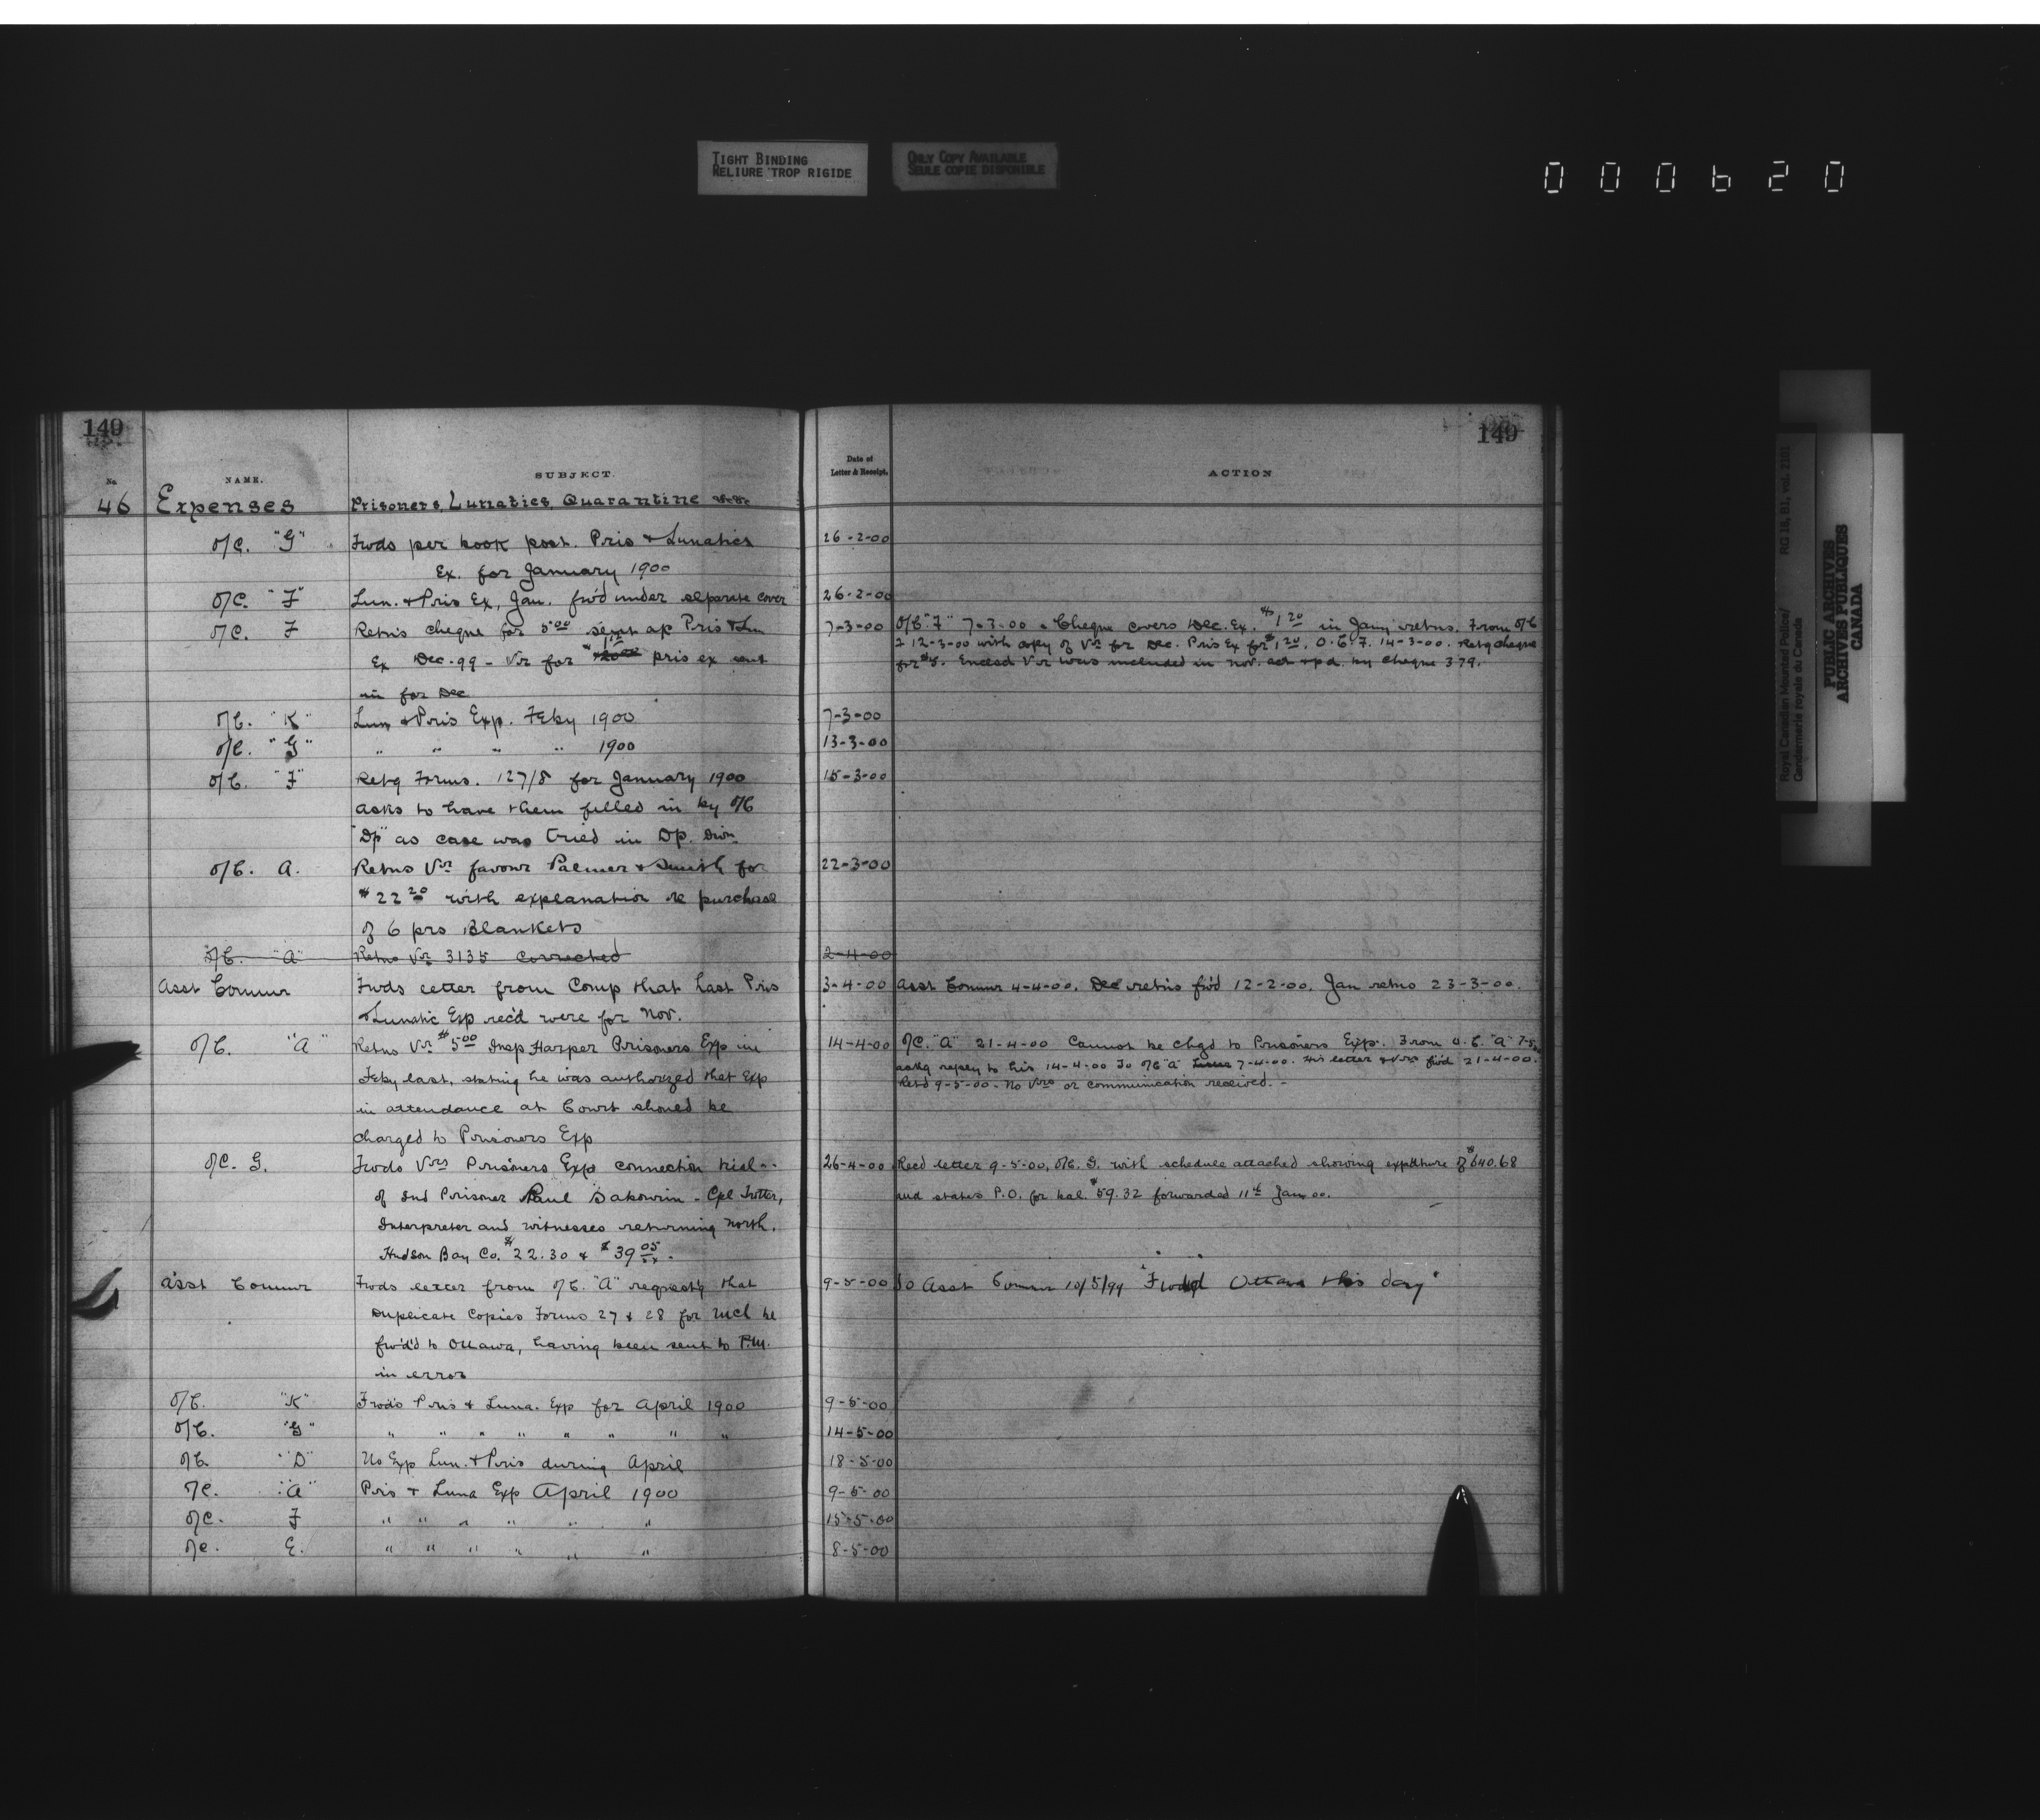 TIGHT BINDING
RELIURE TROP RIGIDE
ONLY COPY AVAILABLE
SEULE COPIE DISPONIBLE
000620
149
149
No.
NAME.
SUBJECT.
Date of
Letter & Receipt.
ACTION
46 Expenses Prisoners, Lunatics, Quarantine &c &c
O/C. "G" Fwds per book post. Pris & Lunatics 26-2-00
Ex. for January 1900
O/C. "F" Lun. & Pris Ex, Jan. fw'd under separate cover 26-2-00
O/C. F Retns cheque for 5.00 sent ac Pris & Lun 7-3-00 O/C "F" 7-3-00. Cheque covers Dec. Ex. $1.20 in Jany retns. From O/C
Ex Dec-99 - Vr for pris ex sent F 12-3-00 with copy of Vr for Dec. Pris Ex for $1.20. O.C.F. 14-3-00. Retg cheque
for $5. Enclsd Vr was included in Nov. act & pd. by cheque 379.
in for Dec
O/C. "K" Lun & Pris Exp. Feby 1900 7-3-00
O/C. "G" " " " " 1900 13-3-00
O/C. "F" Retg Forms. 127/8 for January 1900 15-3-00
asks to have them filled in by O/C
"Dp" as case was tried in Dp. Divn
O/C. A. Retns Vr favour Palmer & Smith for 22-3-00
$22.20 with explanation re purchase
of 6 prs Blankets
O/C. "A" Retns Vr 3135 corrected 2-4-00
Asst Commr Fwds letter from Comp that Last Pris 3-4-00 Asst Commr 4-4-00. Dec retns fw'd 12-2-00. Jan retns 23-3-00.
& Lunatic Exp rec'd were for Nov.
O/C. "A" Retns Vr $5.00 Insp Harper Prisoners Exp in 14-4-00 O/C. "A" 21-4-00 Cannot be chgd to Prisoners Exp. From O.C. "A" 7-5-00
Feby last, stating he was authorized that Exp askg reply to his 14-4-00 To O/C "A" 7-4-00. His letter & Vrs fwd 21-4-00.
Retd 9-5-00 - No Vrs or communication received. -
in attendance at Court should be
charged to Prisoners Exp
O/C. G. Fwds Vrs Prisoners Exp connection trial 26-4-00 Recd letter 9-5-00, O/C. G. with schedule attached showing expditure of $640.68
of Ind Prisoner Paul Sabourin - Cpl Trotter, and states P.O. for bal. $59.32 forwarded 11th Jan 00.
Interpreter and witnesses returning north.
Hudson Bay Co. $22.30 & $39.05.
Asst Commr Fwds letter from O/C. "A" requestg that 9-5-00 To Asst Commr 10/5/99 "Fwded Ottawa this day"
Duplicate Copies Forms 27 & 28 for Mch be
fw'd'd to Ottawa, having been sent to P.M.
in error
O/C. "K" Fwds Pris & Luna. Exp for April 1900 9-5-00
O/C. "G" " " " " " " " " 14-5-00
O/C "D" No Exp Lun. & Pris during April 18-5-00
O/C. "A" Pris & Luna Exp April 1900 9-5-00
O/C. F " " " " " " 15-5-00
O/C. E. " " " " " " 8-5-00
Royal Canadian Mounted Police/ RG 18, B1, vol. 2181
Gendarmerie royale du Canada
PUBLIC ARCHIVES
ARCHIVES PUBLIQUES
CANADA